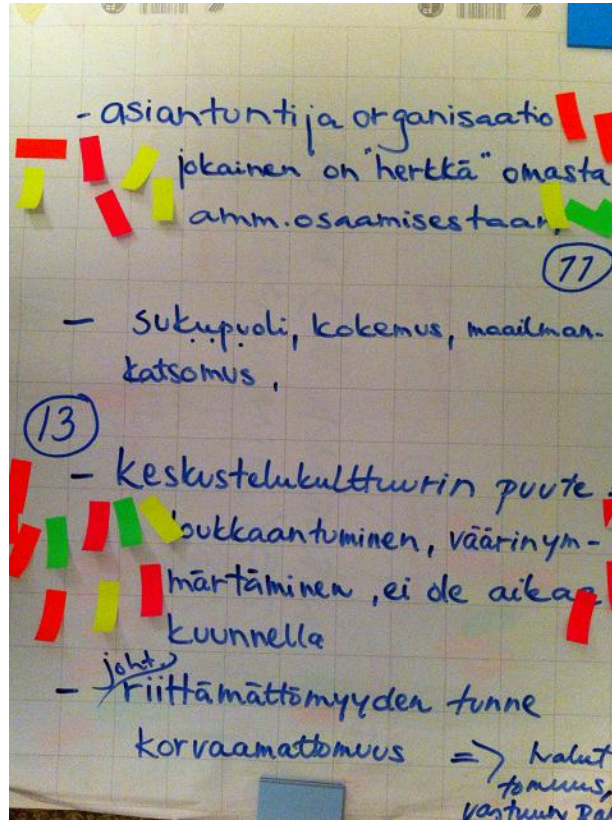 - asiantuntija organisaatio
jokainen on "herkkä" omasta
amm.osaamisestaan
11
- sukupuoli, kokemus, maailman-
katsomus,
13
- keskustelukulttuurin puute
loukkaantuminen, väärinym-
märtäminen, ei ole aikaa
kuunnella
joht.
- riittämättömyyden tunne
korvaamattomuus => halut
tomuus,
vastuun